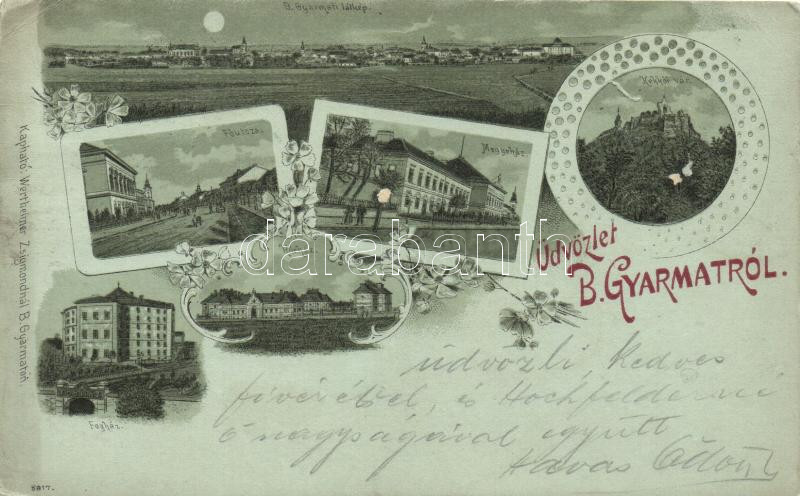 B. Gyarmati látkép.
Kékkői vár.
Főutcza.
Megyeház.
Üdvözlet
B. GYARMATRÓL.
darabanth
Kapható: Wertheimer Zsigmondnál B. Gyarmaton.
Fogház.
üdvözli, kedves
fivérével, és Hochfelderné
ő nagyságával együtt
Havas Ödön
5817.